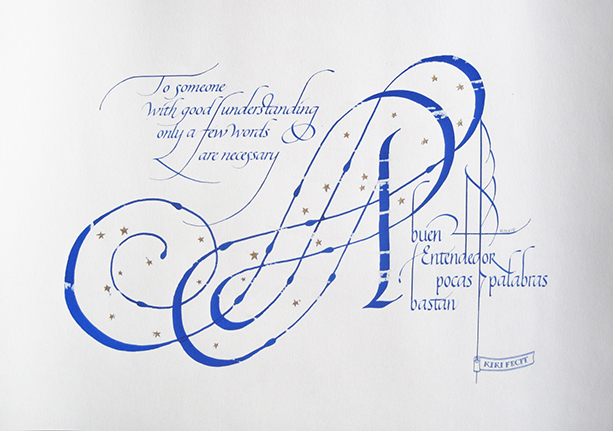 To someone
with good understanding
only a few words
are necessary
A
buen
Entendedor
pocas palabras
bastan
KIKI FECIT